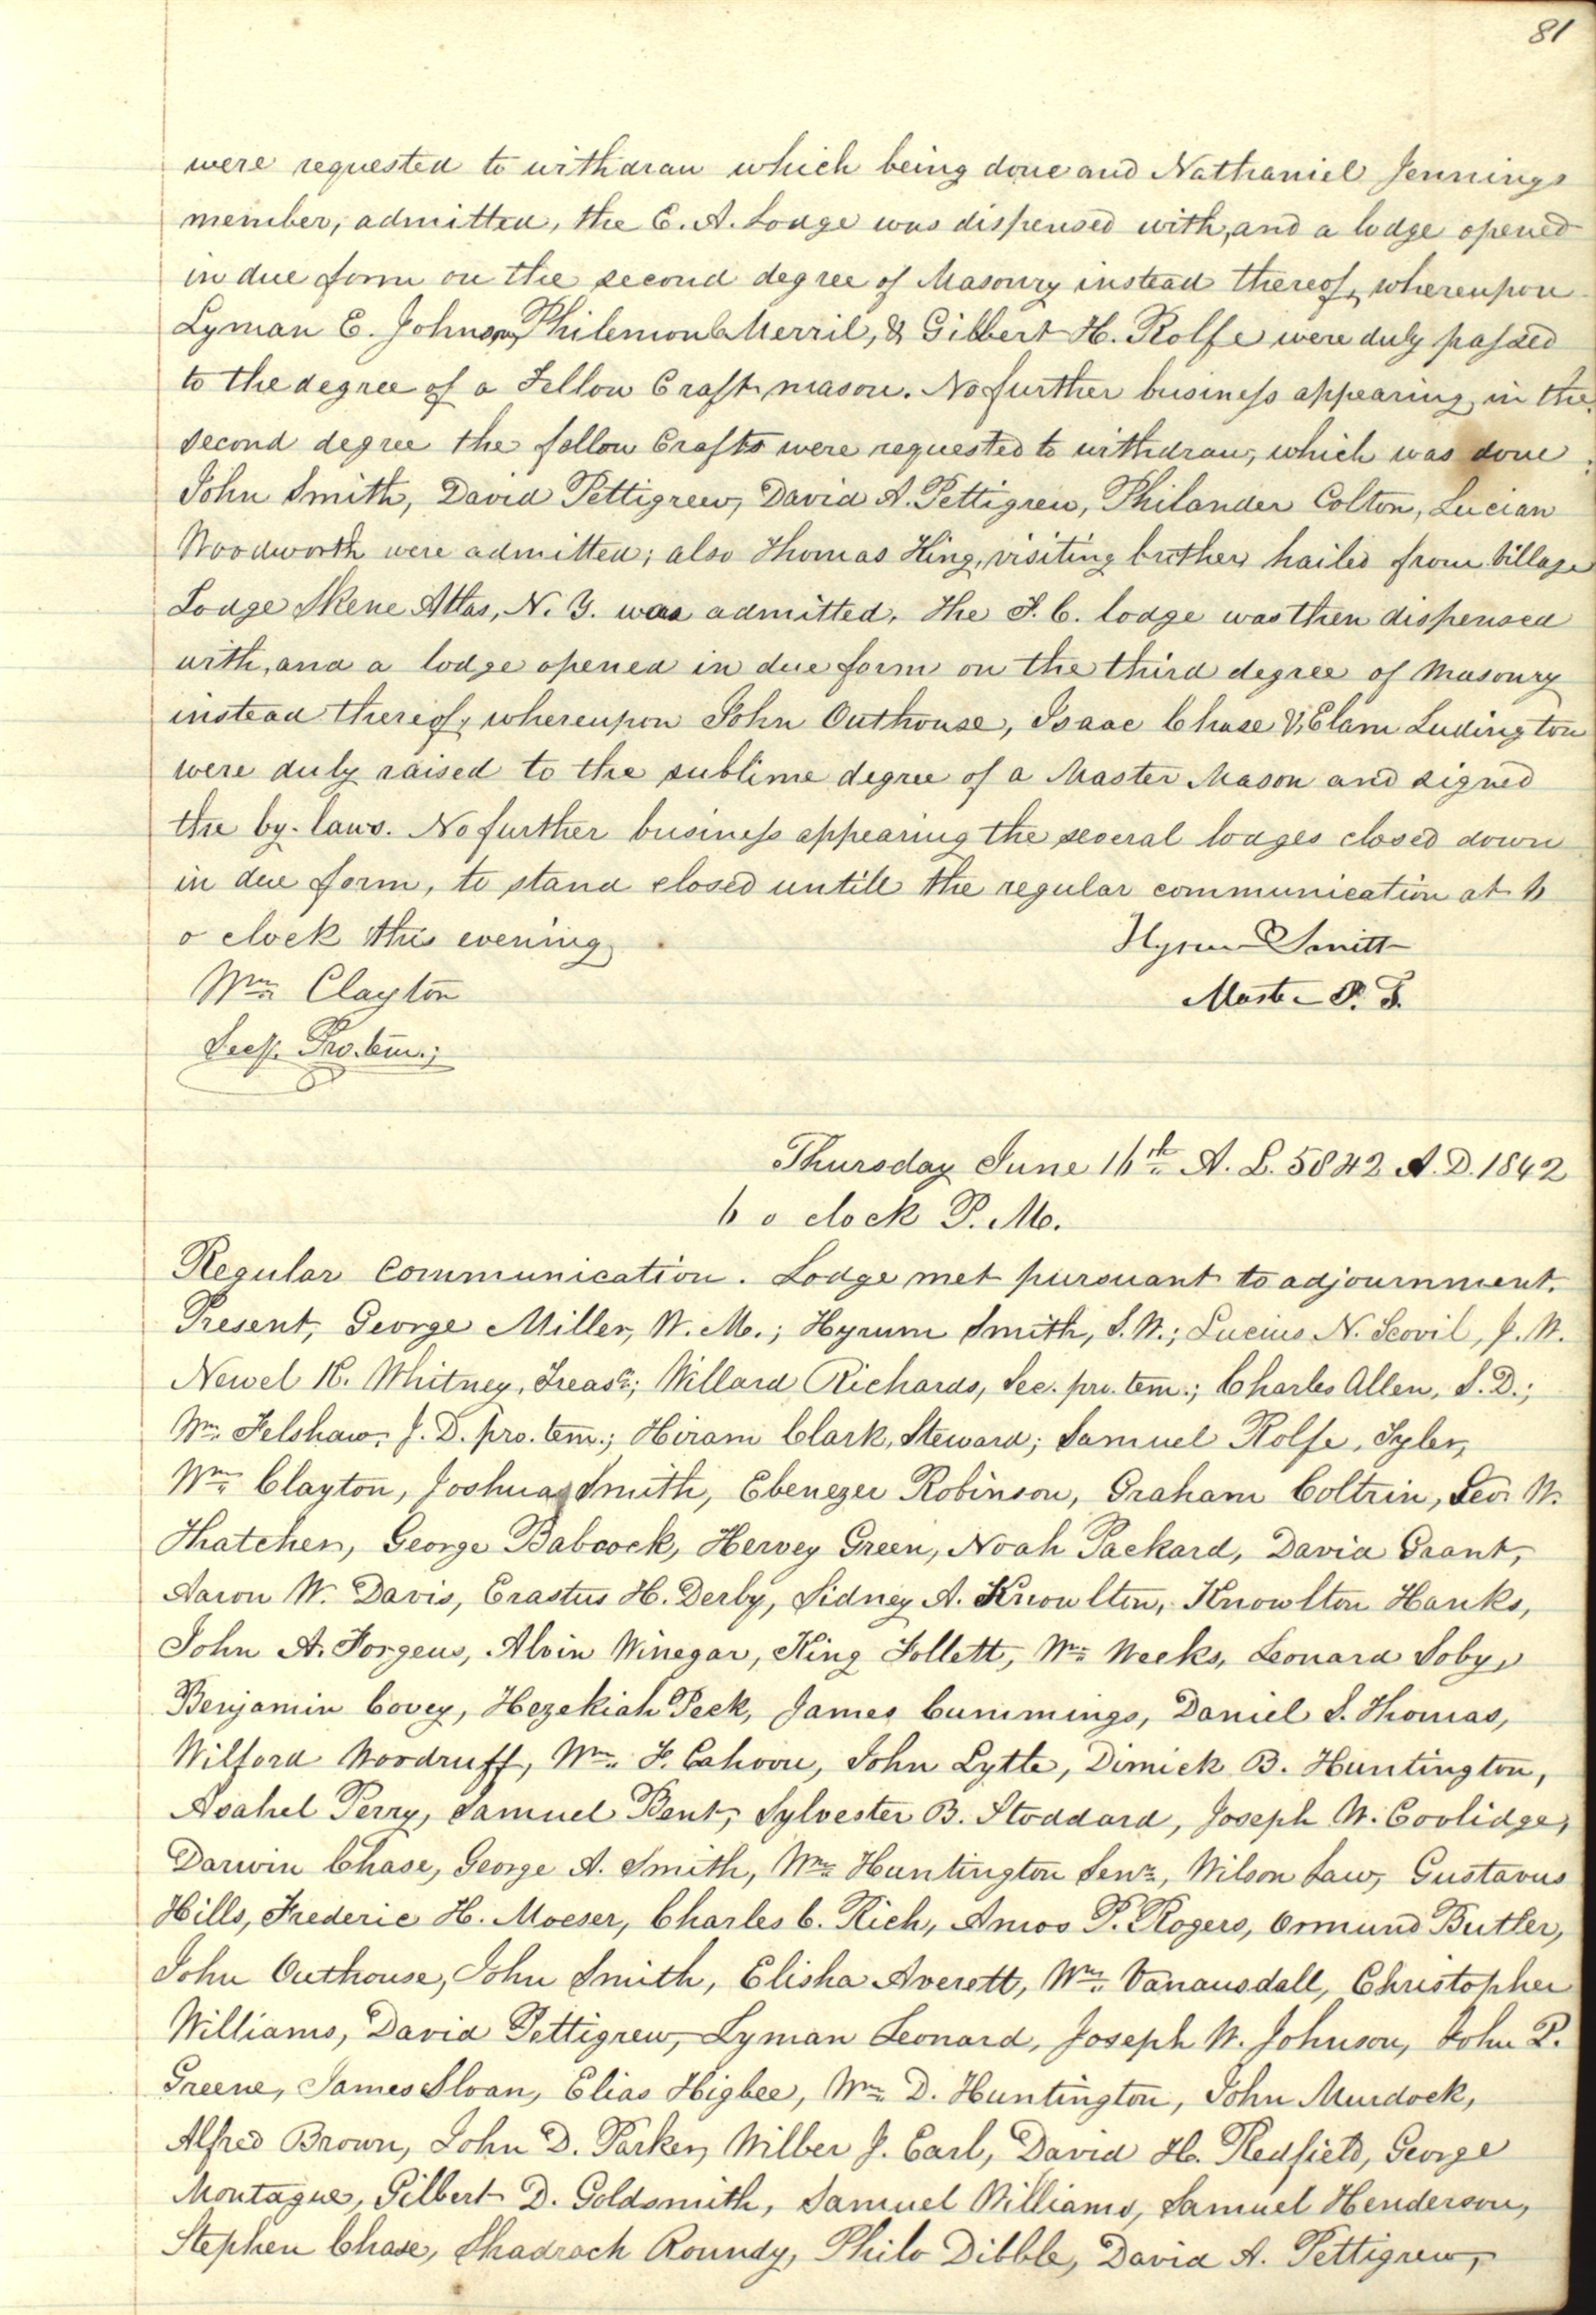 81
were requested to withdraw which being done and Nathaniel Jennings
member, admitted, the E. A. Lodge was dispensed with, and a lodge opened
in due form on the second degree of Masonry instead thereof, whereupon
Lyman E. Johnson, Philemon C. Merril, & Gilbert H. Rolfe were duly passed
to the degree of a Fellow Craft mason. No further business appearing in the
second degree the fellow Crafts were requested to withdraw, which was done.
John Smith, David Pettigrew, David A. Pettigrew, Philander Colton, Lucian
Woodworth were admitted; also Thomas King, visiting brother, hailed from Village
Lodge Skene Atlas, N. Y. was admitted, The F. C. lodge was then dispensed
with, and a lodge opened in due form on the third degree of Masonry
instead thereof, whereupon John Outhouse, Isaac Chase & Elam Ludington
were duly raised to the sublime degree of a Master Mason and signed
the by-laws. No further business appearing the several lodges closed down
in due form, to stand closed untill the regular communication at 6
o clock this evening.
Hyrum Smith
Wm Clayton
Master P. T.
Secy. Pro. tem.;
Thursday June 16th A. L. 5842 A. D. 1842
6 o clock P. M.
Regular Communication. Lodge met pursuant to adjournment.
Present, George Miller, W. M.; Hyrum Smith, S. W.; Lucius N. Scovil, J. W.
Newel K. Whitney, Treasr; Willard Richards, Sec. pro. tem.; Charles Allen, S. D.;
Wm. Felshaw, J. D. pro. tem.; Hiram Clark, Steward; Samuel Rolfe, Tyler,
Wm Clayton, Joshua Smith, Ebenezer Robinson, Graham Coltrin, Geo. W.
Thatcher, George Babcock, Hervey Green, Noah Packard, David Grant,
Aaron W. Davis, Erastus H. Derby, Sidney A. Knowlton, Knowlton Hanks,
John A. Forgeus, Alvin Winegar, King Follett, Wm Weeks, Leonard Soby,
Benjamin Covey, Hezekiah Peck, James Cummings, Daniel S. Thomas,
Wilford Woodruff, Wm. F. Cahoon, John Lytle, Dimick B. Huntington,
Asahel Perry, Samuel Bent, Sylvester B. Stoddard, Joseph W. Coolidge,
Darwin Chase, George A. Smith, Wm Huntington Senr, Wilson Law, Gustavus
Hills, Frederic H. Moeser, Charles C. Rich, Amos P. Rogers, Ormund Butler,
John Outhouse, John Smith, Elisha Averett, Wm. Vanausdall, Christopher
Williams, David Pettigrew, Lyman Leonard, Joseph W. Johnson, John P.
Greene, James Sloan, Elias Higbee, Wm D. Huntington, John Murdock,
Alfred Brown, John D. Parker, Wilber J. Earl, David H. Redfield, George
Montague, Gilbert D. Goldsmith, Samuel Williams, Samuel Henderson,
Stephen Chase, Shadrach Roundy, Philo Dibble, David A. Pettigrew,